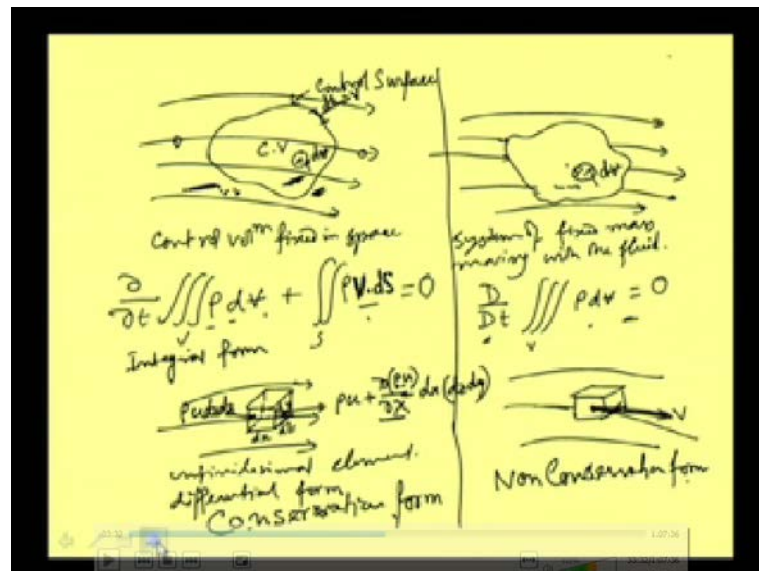 Control Surface
C.V dv
Control volm fixed in space
∂/∂t ∭ ρ dv + ∬ ρV.dS = 0
V S
Integral form
ρudydz
dx dz
ρu + ∂(ρu)/∂x dx (dzdy)
infinidesimal element.
differential form
Conservation form
dv
System of fixed mass
moving with the fluid.
D/Dt ∭ ρ dv = 0
V
V
Non Conservation form
1:07:36